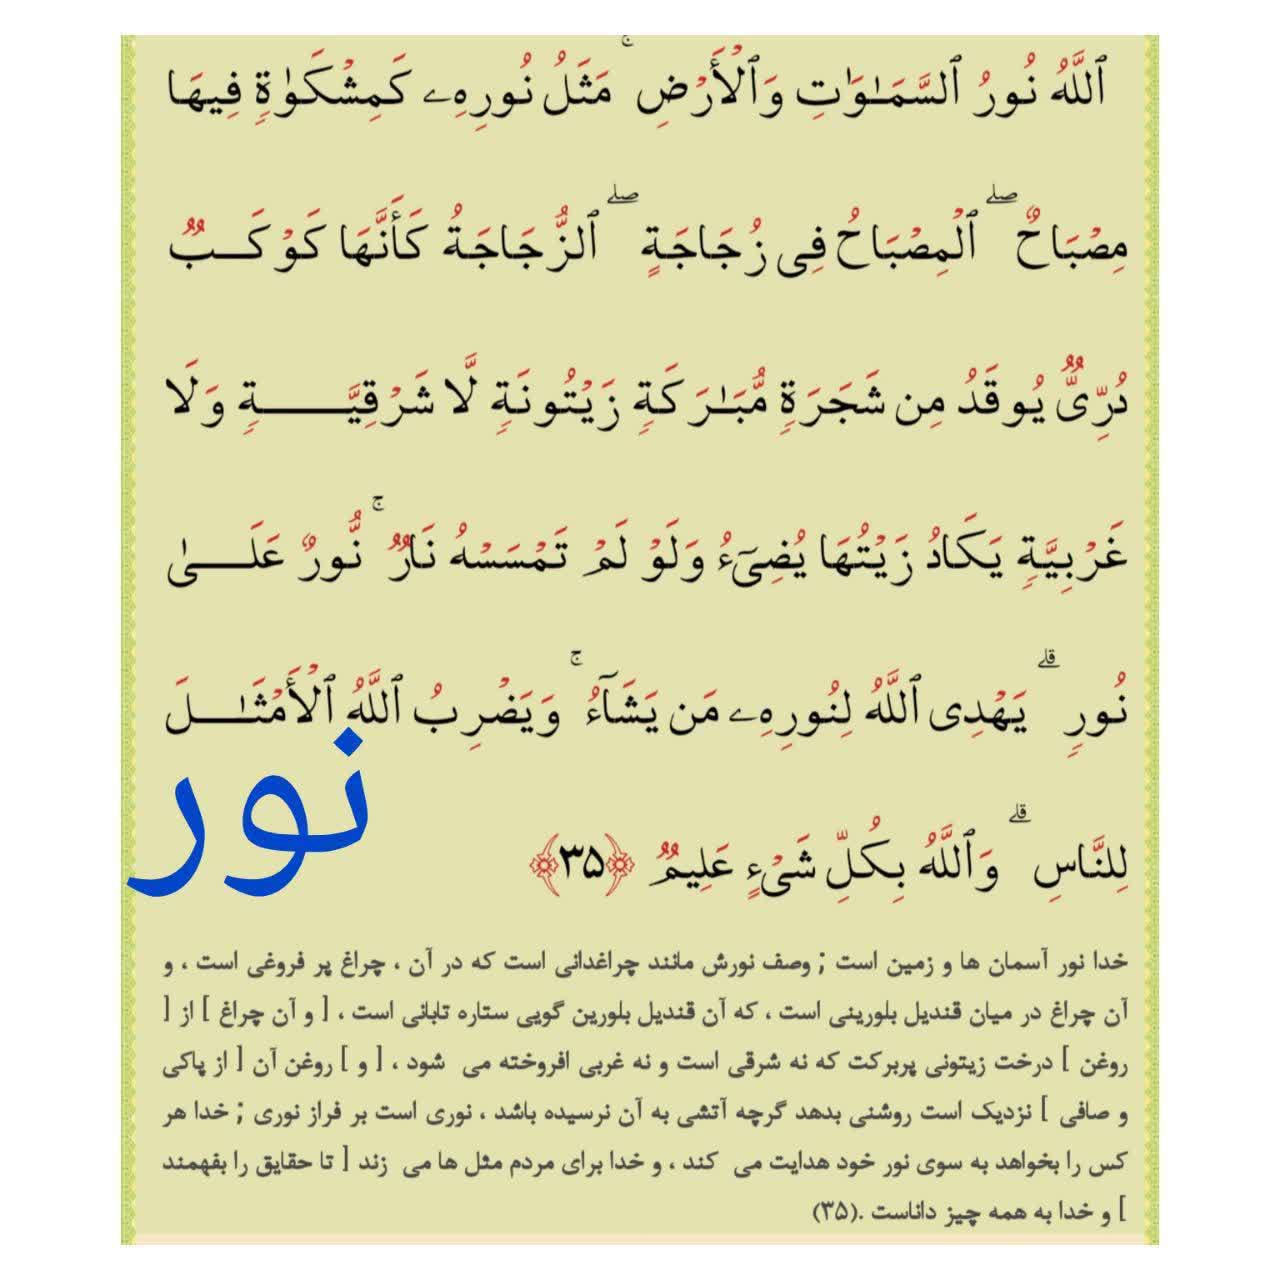 ٱللَّهُ نُورُ ٱلسَّمَـٰوَٰتِ وَٱلْأَرْضِ ۚ مَثَلُ نُورِهِۦ كَمِشْكَوٰةٍ فِيهَا
مِصْبَاحٌ ۖ ٱلْمِصْبَاحُ فِى زُجَاجَةٍ ۖ ٱلزُّجَاجَةُ كَأَنَّهَا كَوْكَـــبٌ
دُرِّىٌّ يُوقَدُ مِن شَجَرَةٍ مُّبَـٰرَكَةٍ زَيْتُونَةٍ لَّا شَرْقِيَّـــــةٍ وَلَا
غَرْبِيَّةٍ يَكَادُ زَيْتُهَا يُضِىٓءُ وَلَوْ لَمْ تَمْسَسْهُ نَارٌ ۚ نُّورٌ عَلَـــىٰ
نُورٍ ۗ يَهْدِى ٱللَّهُ لِنُورِهِۦ مَن يَشَآءُ ۚ وَيَضْرِبُ ٱللَّهُ ٱلْأَمْثَـٰـــلَ
نور
لِلنَّاسِ ۗ وَٱللَّهُ بِكُلِّ شَىْءٍ عَلِيمٌ ﴿۳۵﴾
خدا نور آسمان ها و زمین است ; وصف نورش مانند چراغدانی است که در آن ، چراغ پر فروغی است ، و
آن چراغ در میان قندیل بلورینی است ، که آن قندیل بلورین گویی ستاره تابانی است ، [ و آن چراغ ] از [
روغن ] درخت زیتونی پربرکت که نه شرقی است و نه غربی افروخته می شود ، [ و ] روغن آن [ از پاکی
و صافی ] نزدیک است روشنی بدهد گرچه آتشی به آن نرسیده باشد ، نوری است بر فراز نوری ; خدا هر
کس را بخواهد به سوی نور خود هدایت می کند ، و خدا برای مردم مثل ها می زند [ تا حقایق را بفهمند
] و خدا به همه چیز داناست .(۳۵)